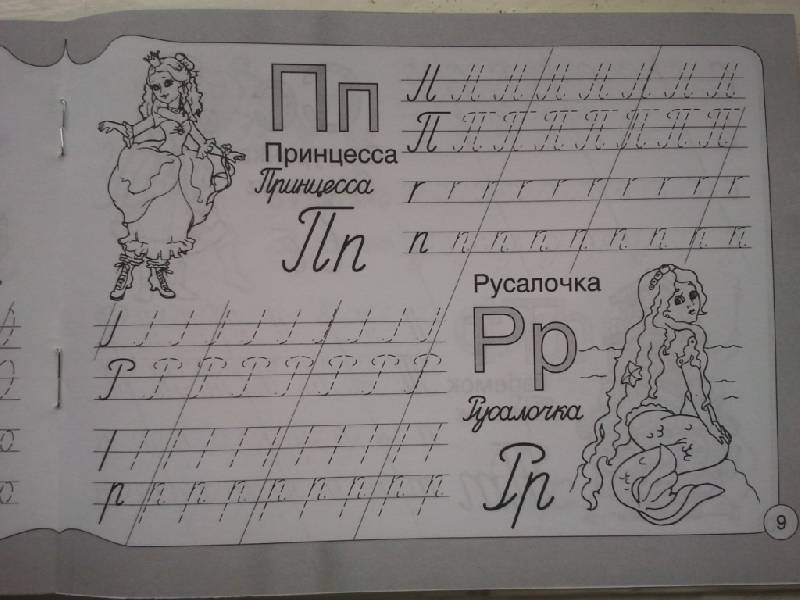 Пп
Принцесса
Принцесса
Пп
П п п п п п п п
п п п п п п п п п п
Русалочка
Рр
Русалочка
Рр
Р Р Р Р Р Р Р Р
р р р р р р р р р
9